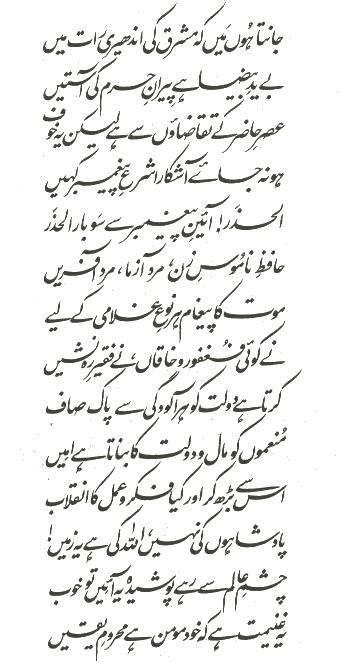 جانتا ہوں میں کہ مشرق کی اندھیری رات میں
بے یدِ بیضا ہے پیرانِ حرم کی آستیں
عصرِ حاضر کے تقاضاؤں سے ہے لیکن یہ خوف
ہو نہ جائے آشکارا شرعِ پیغمبر کہیں
الحذَر! آئینِ پیغمبر سے سَو بار الحذَر
حافظِ نامُوسِ زن، مرد آزما، مرد آفریں
موت کا پیغام ہر نوعِ غلامی کے لیے
نے کوئی فُغفور و خاقاں، نے فقیرِ رہ نشیں
کرتا ہے دولت کو ہر آلودگی سے پاک صاف
مُنعموں کو مال و دولت کا بناتا ہے امیں
اس سے بڑھ کر اور کیا فکر و عمل کا انقلاب
پادشاہوں کی نہیں، اللہ کی ہے یہ زمیں!
چشمِ عالم سے رہے پوشیدہ یہ آئیں تو خوب
یہ غنیمت ہے کہ خود مومن ہے محرومِ یقیں